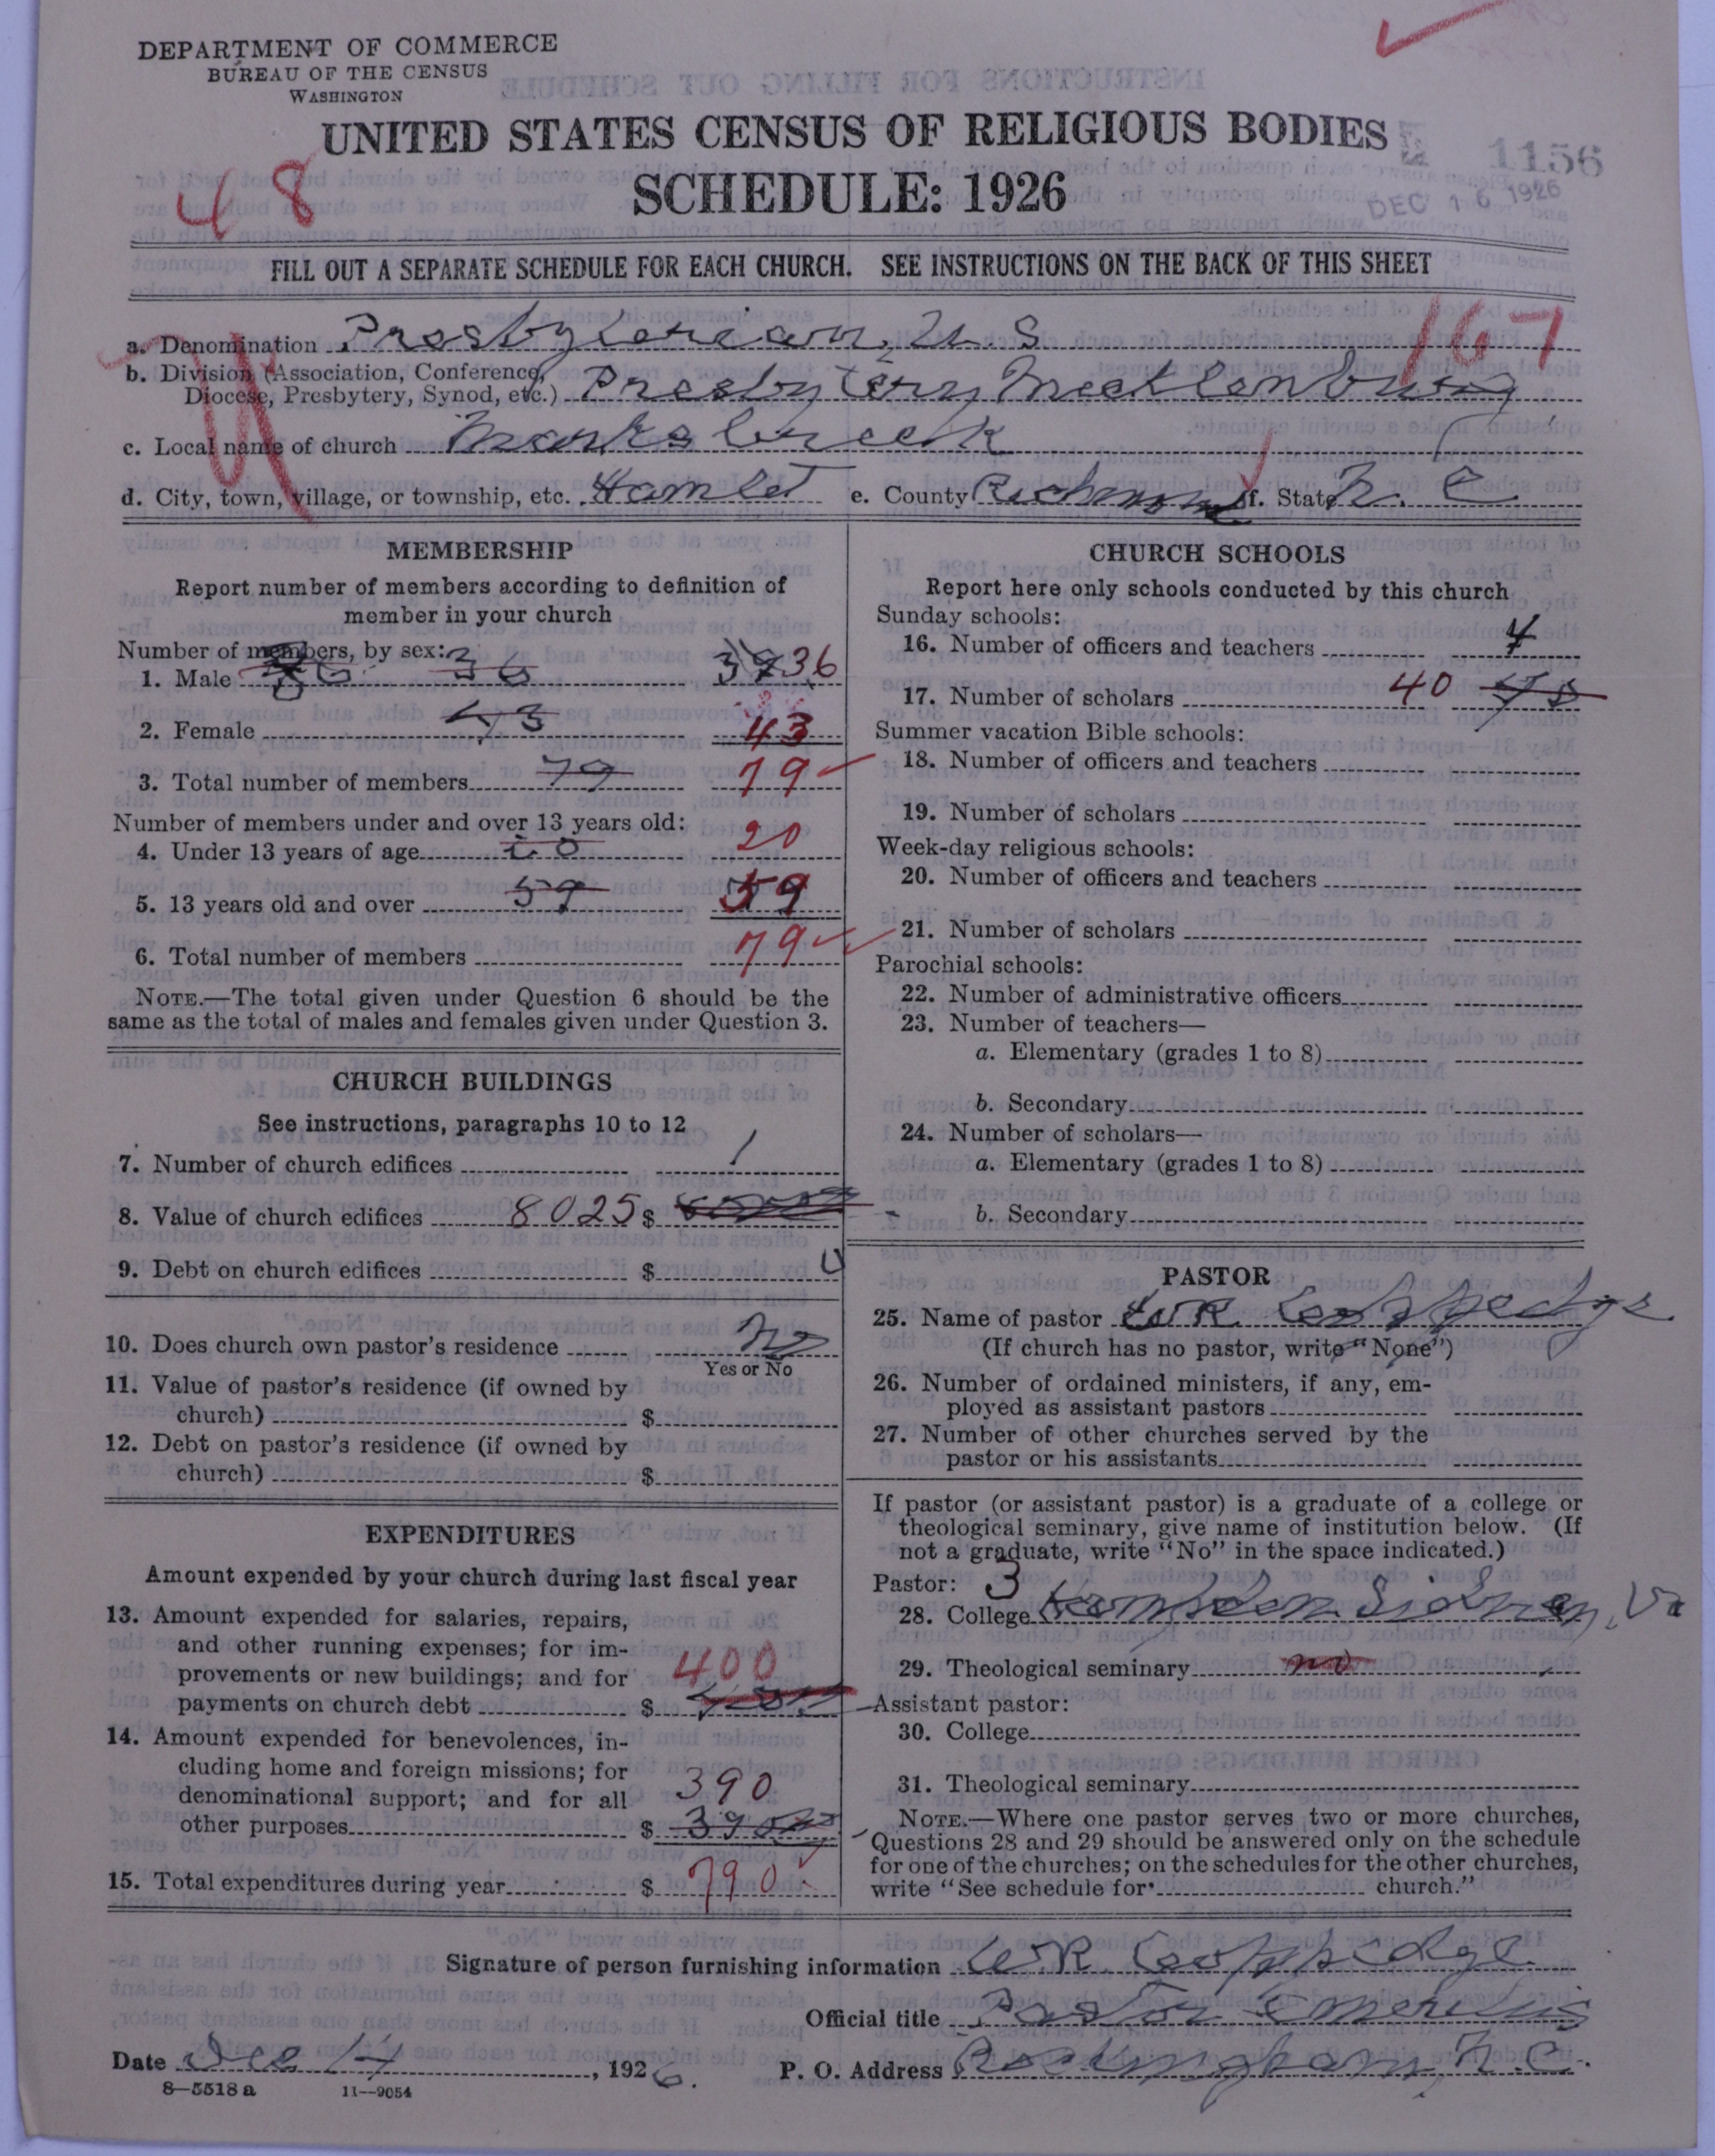 DEPARTMENT OF COMMERCE
BUREAU OF THE CENSUS
WASHINGTON
UNITED STATES CENSUS OF RELIGIOUS BODIES
SCHEDULE: 1926
48
1156
DEC 16 1926
FILL OUT A SEPARATE SCHEDULE FOR EACH CHURCH. SEE INSTRUCTIONS ON THE BACK OF THIS SHEET
167
a. Denomination Presbyterian, U. S
b. Division (Association, Conference, Diocese, Presbytery, Synod, etc.) Presbytery Mecklenburg
c. Local name of church Marks creek
d. City, town, village, or township, etc. Hamlet e. County Richmond f. State N. C.
MEMBERSHIP
Report number of members according to definition of
member in your church
Number of members, by sex:
1. Male 36 36
2. Female 43 43
3. Total number of members 79 79
Number of members under and over 13 years old:
4. Under 13 years of age 20 20
5. 13 years old and over 59 59
6. Total number of members 79
NOTE.—The total given under Question 6 should be the
same as the total of males and females given under Question 3.
CHURCH BUILDINGS
See instructions, paragraphs 10 to 12
7. Number of church edifices 1
8. Value of church edifices 8025 $
9. Debt on church edifices $ 0
10. Does church own pastor's residence No
Yes or No
11. Value of pastor's residence (if owned by
church) $
12. Debt on pastor's residence (if owned by
church) $
EXPENDITURES
Amount expended by your church during last fiscal year
13. Amount expended for salaries, repairs,
and other running expenses; for im-
provements or new buildings; and for 400
payments on church debt $
14. Amount expended for benevolences, in-
cluding home and foreign missions; for
denominational support; and for all 390
other purposes $
15. Total expenditures during year $ 790
CHURCH SCHOOLS
Report here only schools conducted by this church
Sunday schools:
16. Number of officers and teachers 4
17. Number of scholars 40
Summer vacation Bible schools:
18. Number of officers and teachers
19. Number of scholars
Week-day religious schools:
20. Number of officers and teachers
21. Number of scholars
Parochial schools:
22. Number of administrative officers
23. Number of teachers—
a. Elementary (grades 1 to 8)
b. Secondary
24. Number of scholars—
a. Elementary (grades 1 to 8)
b. Secondary
PASTOR
25. Name of pastor W R Coppedge
(If church has no pastor, write "None")
26. Number of ordained ministers, if any, em-
ployed as assistant pastors
27. Number of other churches served by the
pastor or his assistants
If pastor (or assistant pastor) is a graduate of a college or
theological seminary, give name of institution below. (If
not a graduate, write "No" in the space indicated.)
Pastor: 3
28. College Hampden Sidney, Va
29. Theological seminary no
Assistant pastor:
30. College
31. Theological seminary
NOTE.—Where one pastor serves two or more churches,
Questions 28 and 29 should be answered only on the schedule
for one of the churches; on the schedules for the other churches,
write "See schedule for church."
Signature of person furnishing information W. R. Coppedge
Official title Pastor Emeritus
Date Dec 14, 1926. P. O. Address Rockingham, N. C.
8—5518 a 11—9054